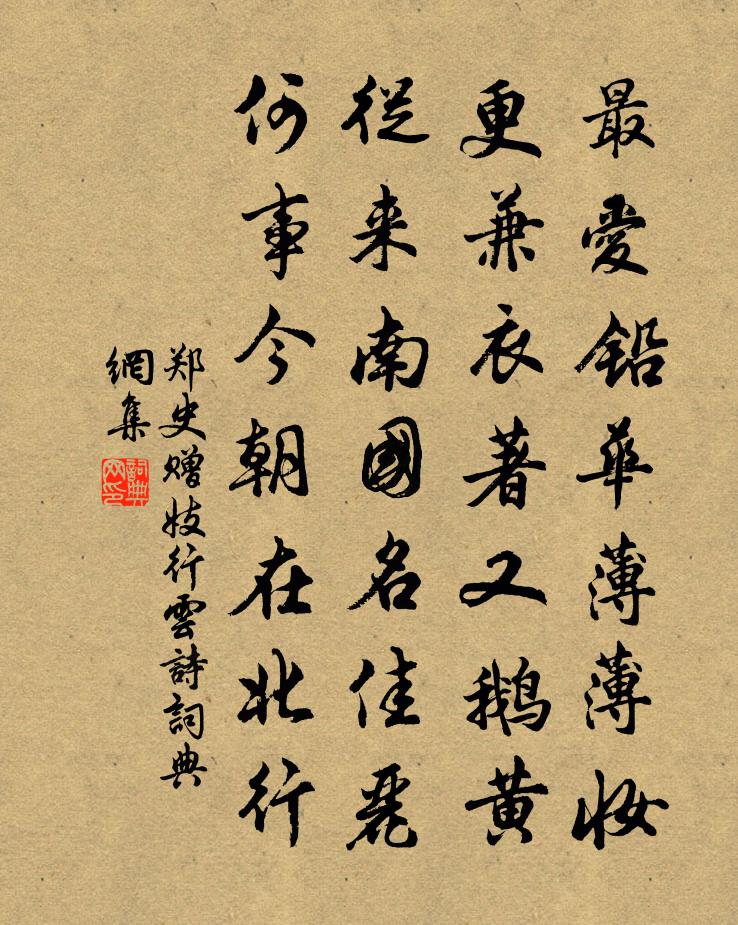 最愛鉛華薄薄妝
更兼衣著又鵝黃
從来南國名佳麗
何事今朝在北行
郑史赠妓行雲詩詞典
網集
詞典
网印